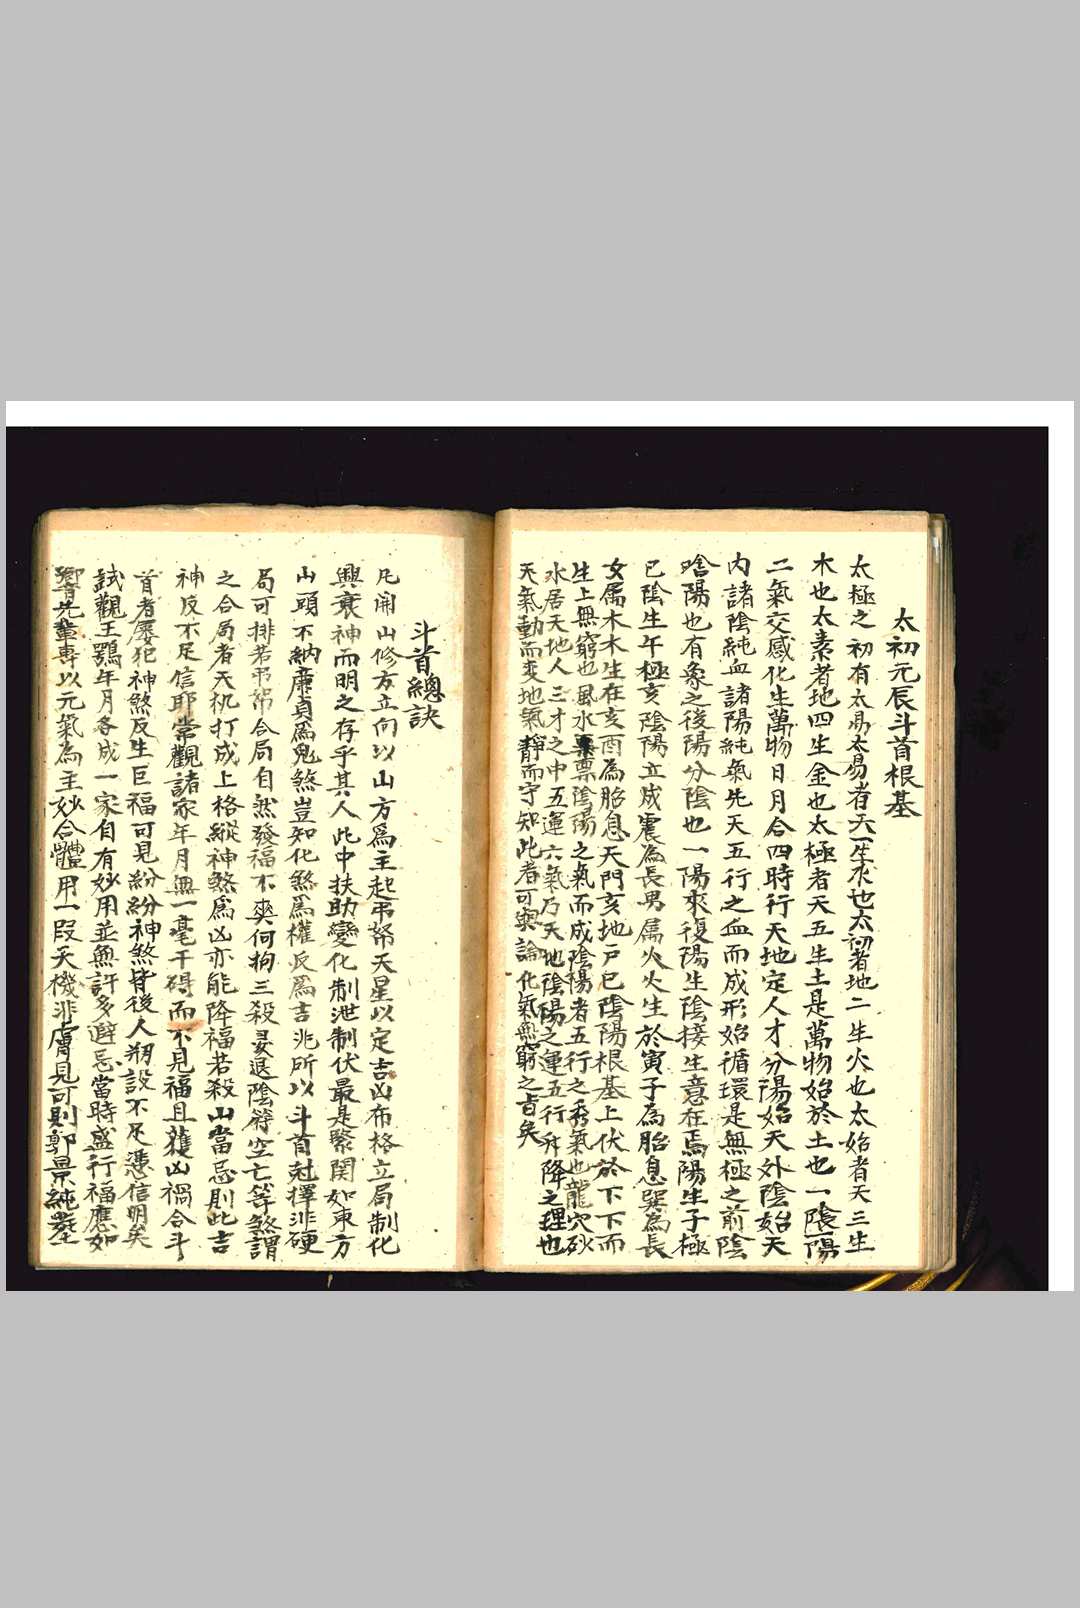 太初元辰斗首根基
太極之初有太易太易者天一生水也太初者地二生火也太始者天三生
木也太素者地四生金也太極者天五生土是萬物始於土也一陰陽
二氣交感化生萬物日月合四時行天地定人才分陽始天外陰始天
內諸陰純血諸陽純氣先天五行之血而成形始循環是無極之前陰
含陽也有象之後陽分陰也一陽來復陽生陰接生意在焉陽生子極
巳陰生午極亥陰陽立成震為長男属火火生於寅子為胎息巽為長
女属木木生在亥酉為胎息天門亥地戶巳陰陽根基上伏於下下而
生上無窮也風水稟陰陽之氣而成陰陽者五行之秀氣也龍穴砂
水居天地人三才之中五運六氣乃天地陰陽之運五行升降之理也
天氣動而变地氣靜而守知此者可與論化氣無窮之旨矣
斗首總訣
凡開山修方立向以山方為主起弔帑天星以定吉凶布格立局制化
興衰神而明之存乎其人此中扶助變化制泄制伏最是緊関如東方
山頭不納廉貞爲鬼煞豈知化煞爲權反爲吉兆所以斗首尅擇非硬
局可排若弔帑合局自然發福不爽何拘三殺退陰符空亡等煞謂
之合局者天机打成上格縱神煞爲凶亦能降福若殺山當忌則此吉
神反不足信耶常觀諸家年月無一毫干碍而不見福且獲凶禍合斗
首者屡犯神煞反生巨福可見紛紛神煞皆後人朔設不足憑信明矣
試觀王鶚年月各成一家自有妙用並無許多避忌當時盛行福應如
響先輩專以元氣為主妙合體用一段天機非膚見可則郭景純塟